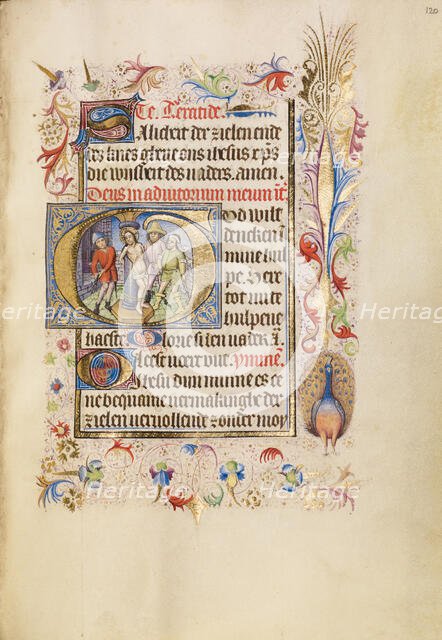 120
Te. Tercide.
Salicheit der zielen ende
des lines gheue ons ihesus xps
die wijsheit des uaders. amen.
Deus in adiutorium meum īt
God wilt
dencken ī
mine hul
pe. Here
tot mire
hulpen
haeste. Glorie si den uader ī.
Alseet voert uut. ymme.
Ihesu dijn minne es ee
ne bequame uermakinghe der
zielen veruollende zonder moy
Heritage
Heritage
Heritage
Heritage
Heritage
Heritage